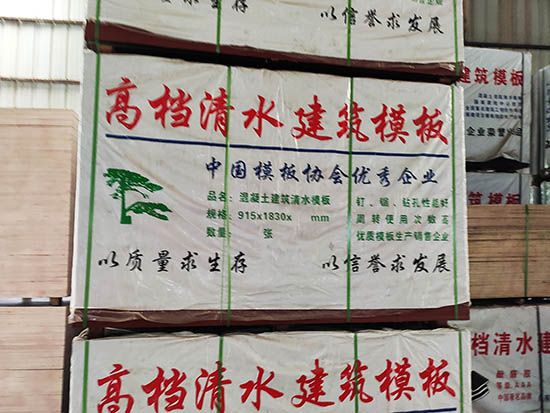 以质量求生存
以信誉求发展
高档清水建筑模板
中国模板协会优秀企业
品名：混凝土建筑清水模板
规格：915x1830x mm
数量： 张
钉、锯、钻孔性能好
周转使用次数高
优质模板生产销售企业
以质量求生存
以信誉求发展
高档清水建筑模板
建筑模板
企业荣誉出品
档清水建
等级:AAA
中国著名品牌